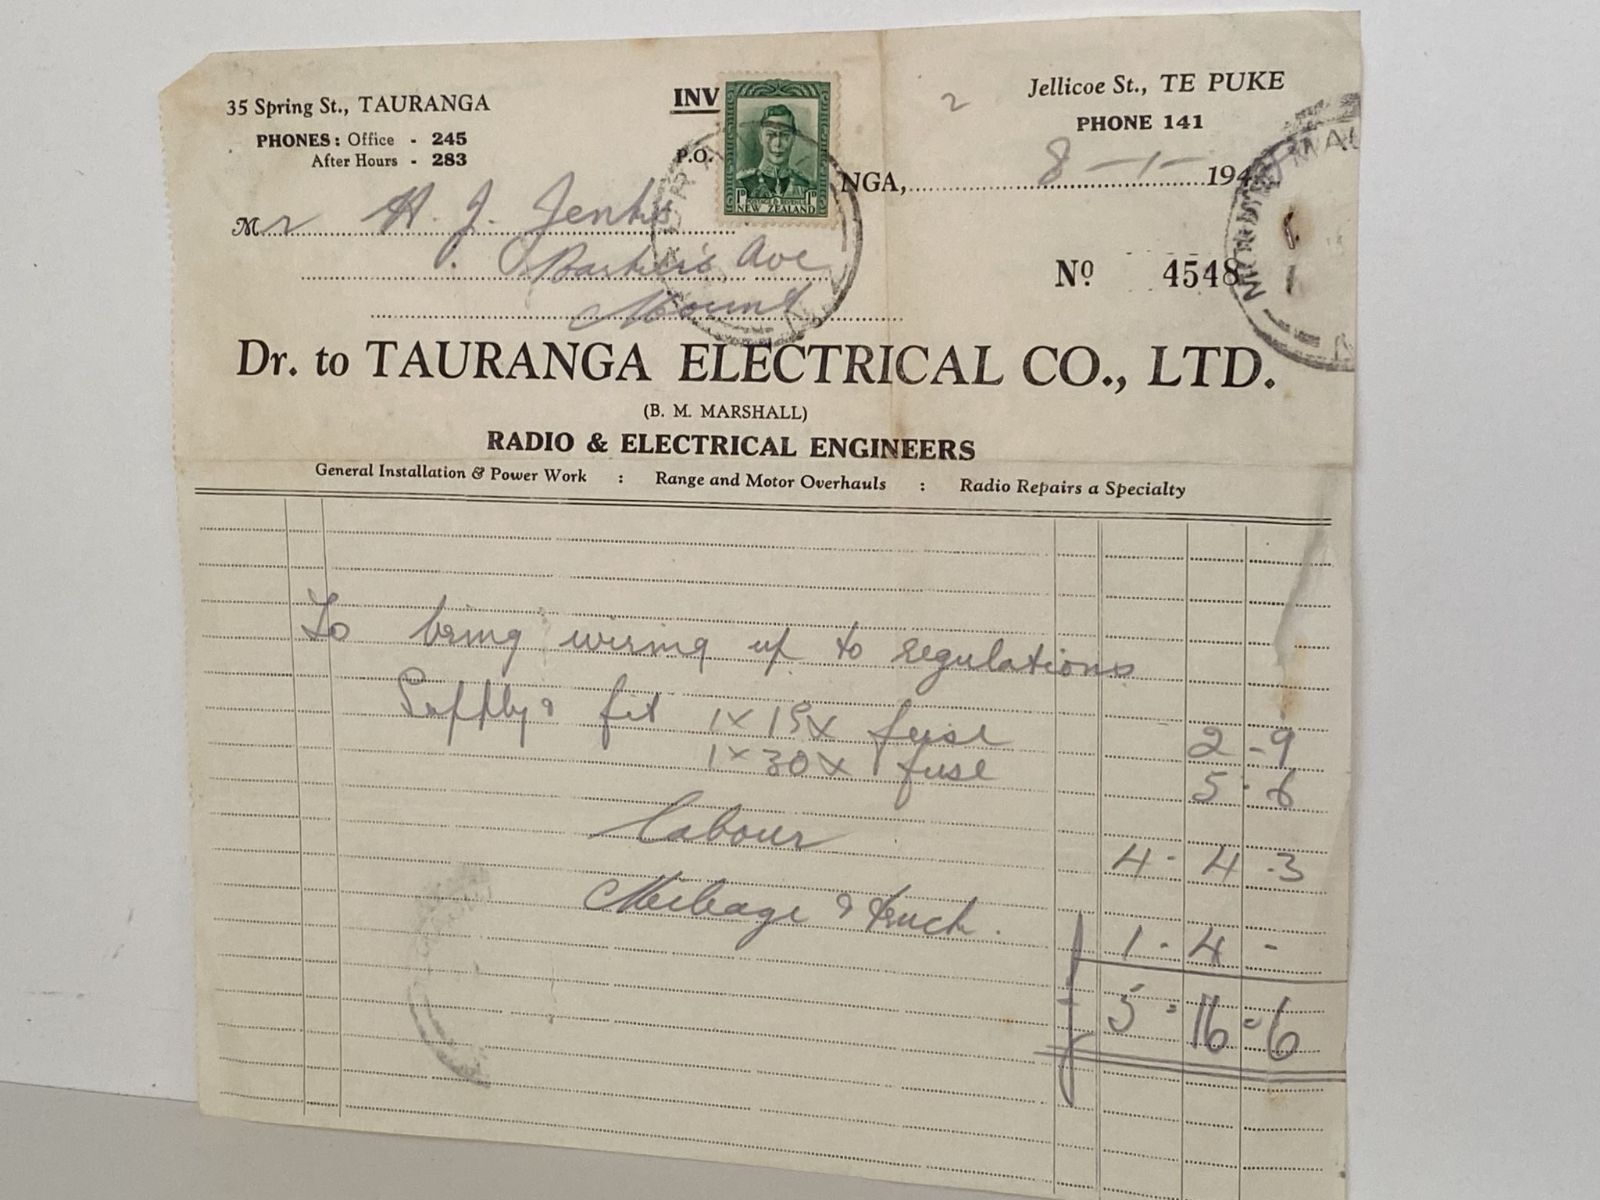 35 Spring St., TAURANGA
PHONES: Office - 245
After Hours - 283
INV
P.O.
NEW ZEALAND
2
Jellicoe St., TE PUKE
PHONE 141
NGA, 8-1-194
Mr H. J. Jenks
Ave
Mount
No 4548
Dr. to TAURANGA ELECTRICAL CO., LTD.
(B. M. MARSHALL)
RADIO & ELECTRICAL ENGINEERS
General Installation & Power Work : Range and Motor Overhauls : Radio Repairs a Specialty
To bring wiring up to regulations
Supply & fit 1 x 15 x fuse 2 - 9
1 x 30 x fuse 5 - 6
Labour 4 - 4 - 3
Mileage & truck. 1 - 4 -
£ 5 = 16 = 6